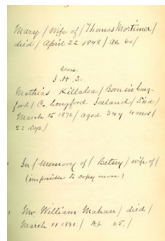 Mary / Wife of / Thomas Mortimer /
died / April 22 1848 / AE 60 /
I. H. S.
Mathew Killalea / Born in Long-
ford / Co. Longford Ireland / Died /
March 15 1872 / aged 34 y 4 mos /
22 dys /
In / Memory of / Betsey / wife of /
(impossible to copy more)
Mr. William Mahan / died /
March 11 1801 / AE 65 /